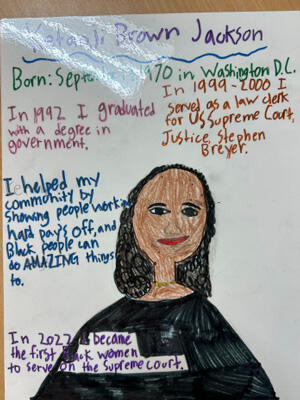 Ketanji Brown Jackson
Born: September 1970 in Washington D.C.
In 1992 I graduated
with a degree in
government.
In 1999-2000 I
served as a law clerk
for US Supreme Court,
Justice, Stephen
Breyer.
I helped my
community by
showing people working
hard pay's off, and
Black people can
do AMAZING things
to.
In 2022 I became
the first Black women
to serve on the Supreme Court.